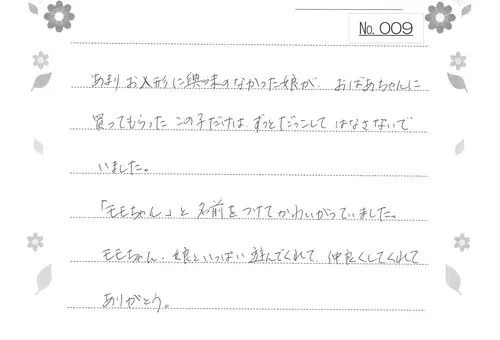 No. 009
あまりお人形に興味のなかった娘が、おばあちゃんに
買ってもらったこの子だけは、ずっとだっこしてはなさないで
いました。
「モモちゃん」と名前をつけてかわいがっていました。
モモちゃん、娘といっぱい遊んでくれて、仲良くしてくれて
ありがとう。